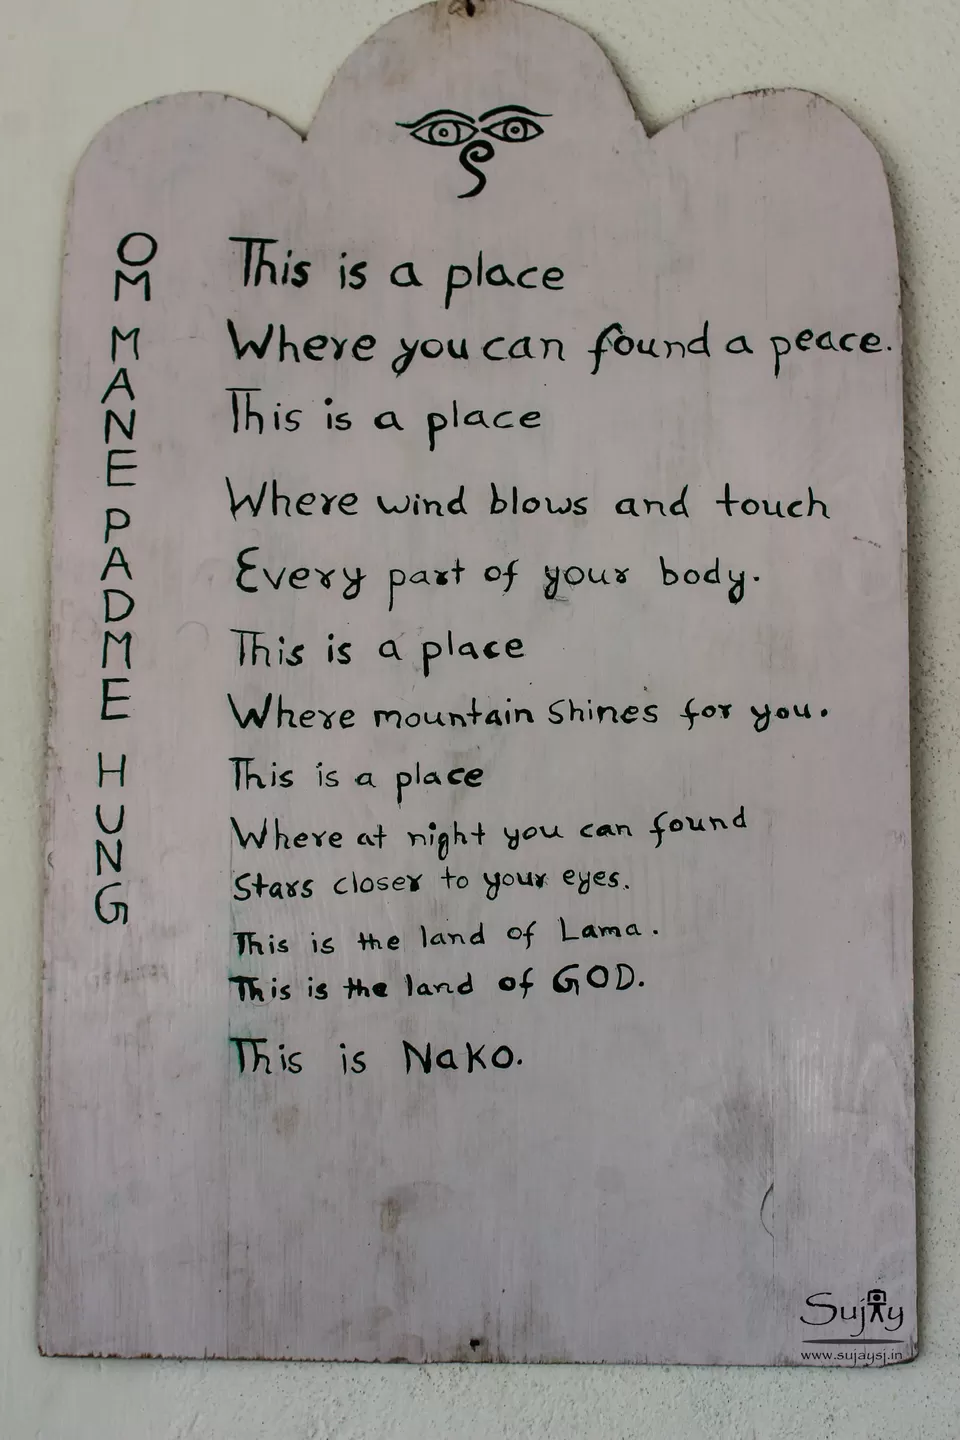 OM MANE PADME HUNG
This is a place
Where you can found a peace.
This is a place
Where wind blows and touch
Every part of your body.
This is a place
Where mountain shines for you.
This is a place
Where at night you can found
Stars closer to your eyes.
This is the land of Lama.
This is the land of GOD.
This is Nako.
Sujay
www.sujaysj.in